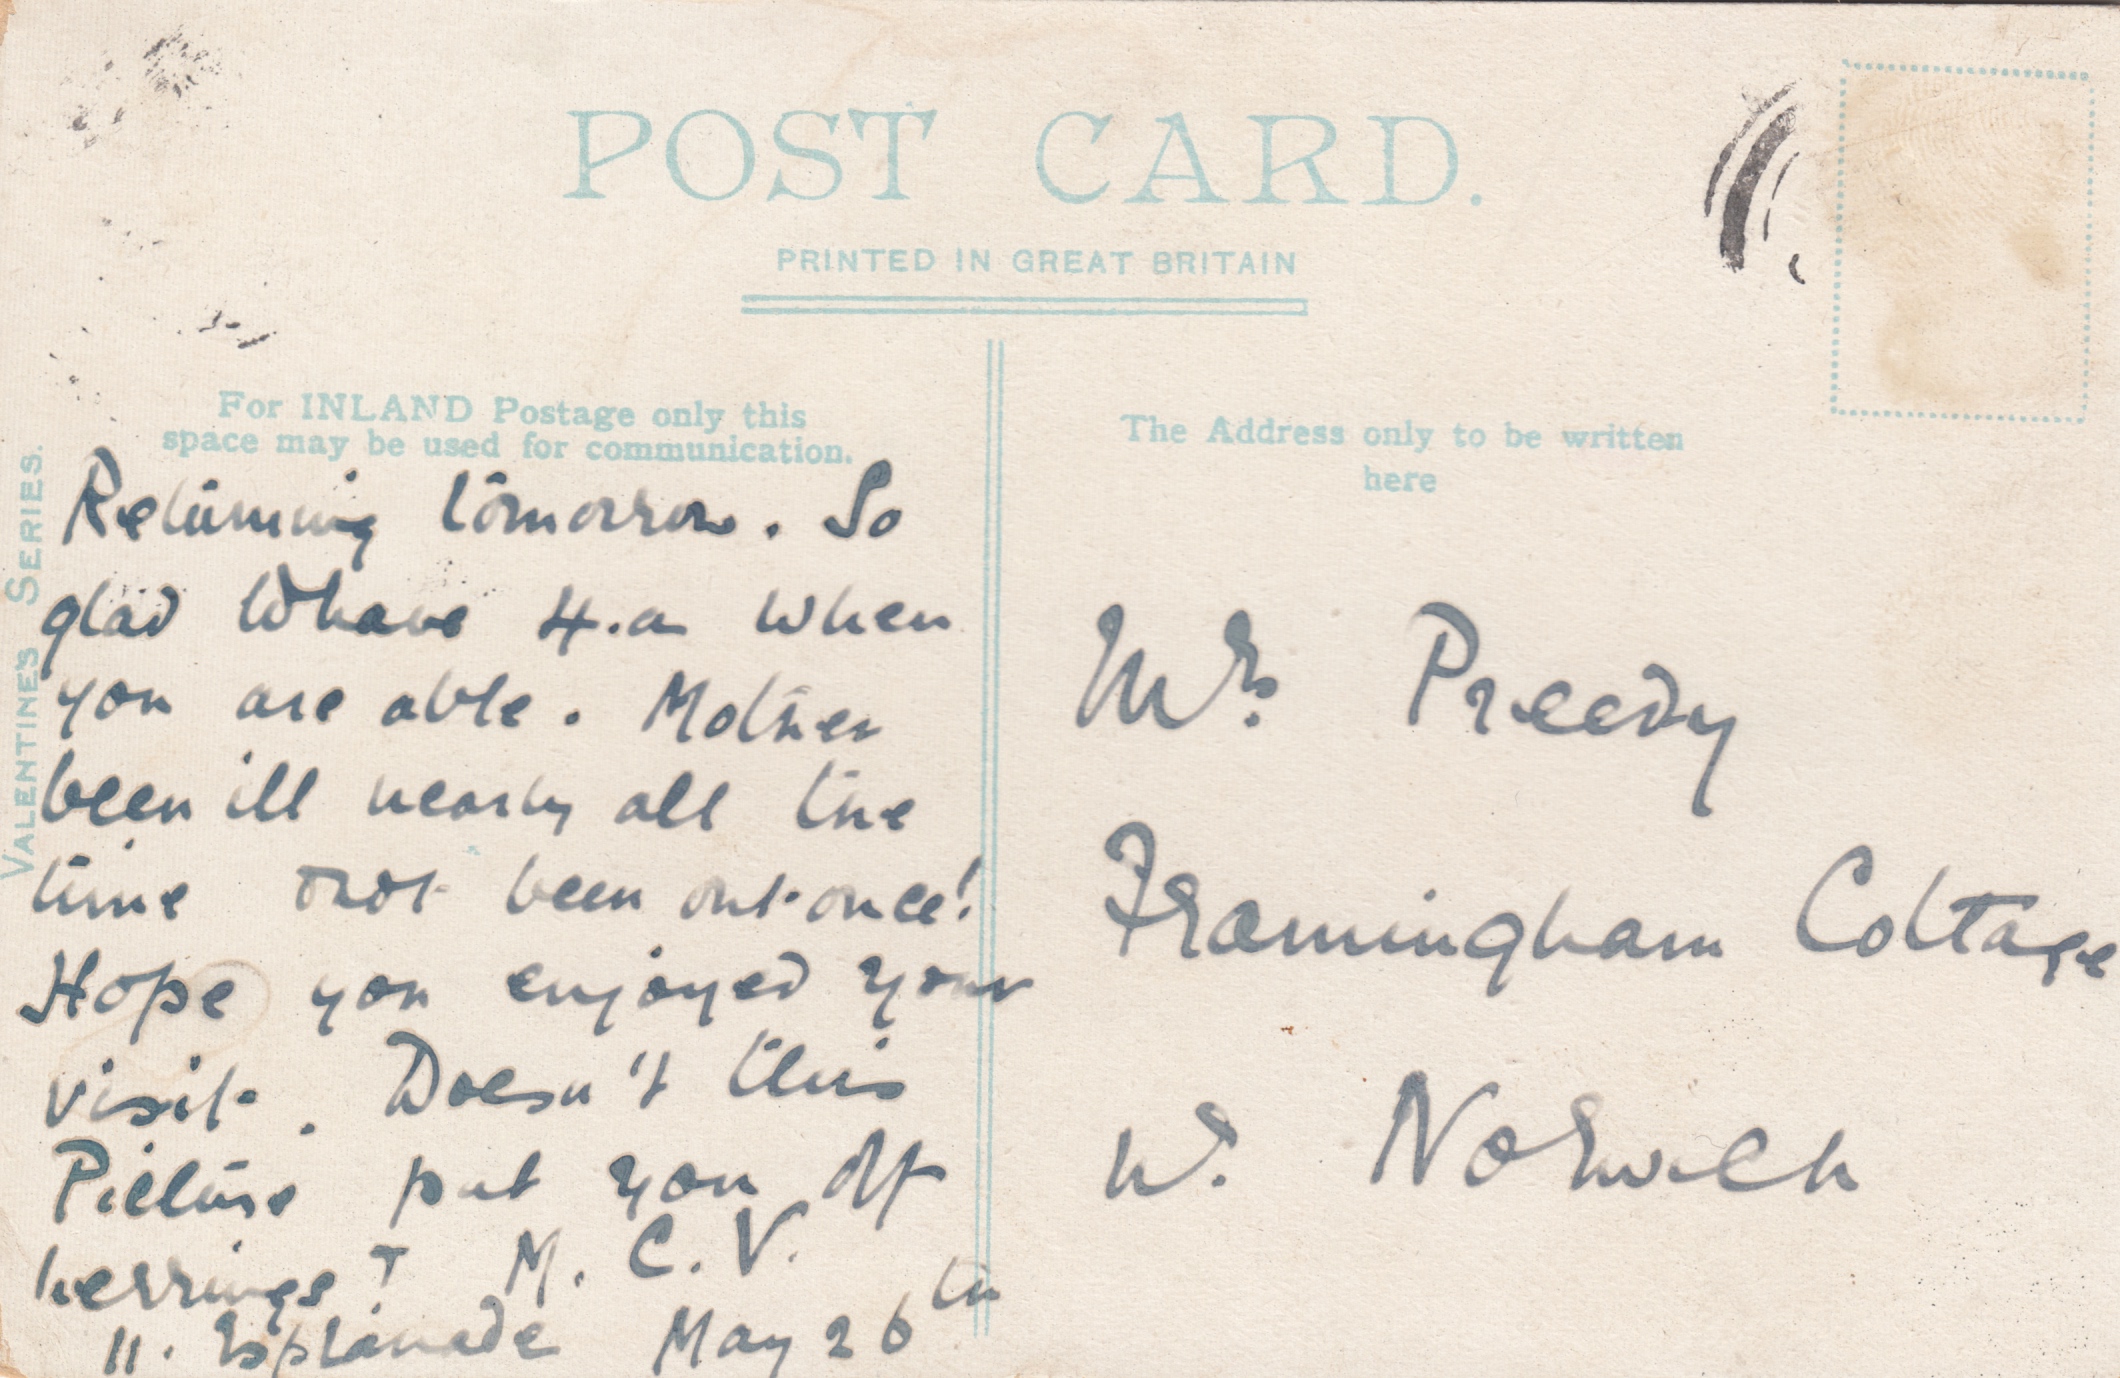 POST CARD.
PRINTED IN GREAT BRITAIN
For INLAND Postage only this
space may be used for communication.
The Address only to be written
here
VALENTINE'S SERIES.
Returning tomorrow. So
glad to have 4.a when
you are able. Mother
been ill nearly all the
time & not been out once!
Hope you enjoyed your
visit. Doesn't this
Picture put you off
herrings? M. C. V.
11. Esplanade May 26th
Mrs. Preedy
Framingham Cottage
Nr. Norwich